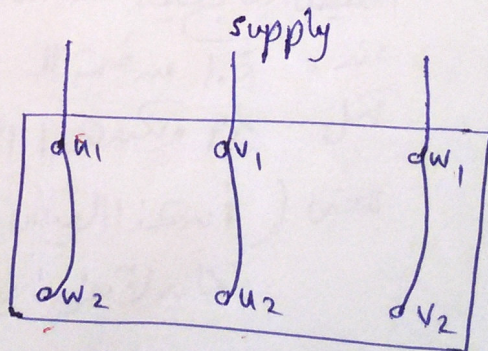 supply
u1 v1 w1
w2 u2 v2